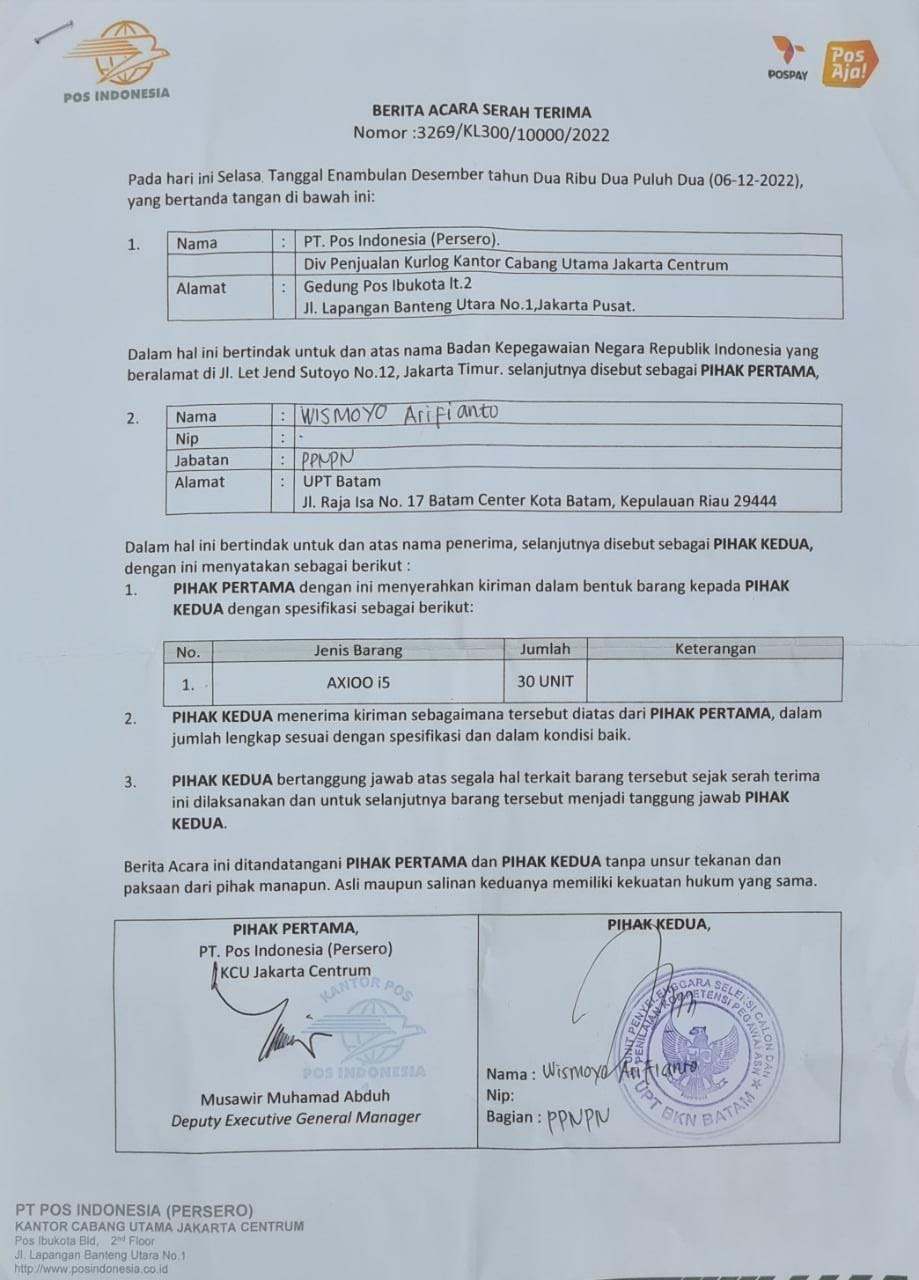 POS INDONESIA
POSPAY
Pos
Aja!
BERITA ACARA SERAH TERIMA
Nomor :3269/KL300/10000/2022
Pada hari ini Selasa, Tanggal Enambulan Desember tahun Dua Ribu Dua Puluh Dua (06-12-2022),
yang bertanda tangan di bawah ini:
1. Nama : PT. Pos Indonesia (Persero).
Div Penjualan Kurlog Kantor Cabang Utama Jakarta Centrum
Alamat : Gedung Pos Ibukota lt.2
Jl. Lapangan Banteng Utara No.1,Jakarta Pusat.
Dalam hal ini bertindak untuk dan atas nama Badan Kepegawaian Negara Republik Indonesia yang
beralamat di Jl. Let Jend Sutoyo No.12, Jakarta Timur. selanjutnya disebut sebagai PIHAK PERTAMA,
2. Nama : WISMOYO Arifianto
Nip : -
Jabatan : PPNPN
Alamat : UPT Batam
Jl. Raja Isa No. 17 Batam Center Kota Batam, Kepulauan Riau 29444
Dalam hal ini bertindak untuk dan atas nama penerima, selanjutnya disebut sebagai PIHAK KEDUA,
dengan ini menyatakan sebagai berikut :
1. PIHAK PERTAMA dengan ini menyerahkan kiriman dalam bentuk barang kepada PIHAK
KEDUA dengan spesifikasi sebagai berikut:
No. Jenis Barang Jumlah Keterangan
1. AXIOO i5 30 UNIT
2. PIHAK KEDUA menerima kiriman sebagaimana tersebut diatas dari PIHAK PERTAMA, dalam
jumlah lengkap sesuai dengan spesifikasi dan dalam kondisi baik.
3. PIHAK KEDUA bertanggung jawab atas segala hal terkait barang tersebut sejak serah terima
ini dilaksanakan dan untuk selanjutnya barang tersebut menjadi tanggung jawab PIHAK
KEDUA.
Berita Acara ini ditandatangani PIHAK PERTAMA dan PIHAK KEDUA tanpa unsur tekanan dan
paksaan dari pihak manapun. Asli maupun salinan keduanya memiliki kekuatan hukum yang sama.
PIHAK PERTAMA,
PT. Pos Indonesia (Persero)
KCU Jakarta Centrum
KANTOR POS
POS INDONESIA
Musawir Muhamad Abduh
Deputy Executive General Manager
PIHAK KEDUA,
UNIT PENYELENGGARA SELEKSI CALON DAN
PENILAIAN KOMPETENSI PEGAWAI ASN
UPT BKN BATAM
Nama : Wismoyo Arifianto
Nip:
Bagian : PPNPN
PT POS INDONESIA (PERSERO)
KANTOR CABANG UTAMA JAKARTA CENTRUM
Pos Ibukota Bld, 2nd Floor
Jl. Lapangan Banteng Utara No.1
http://www.posindonesia.co.id